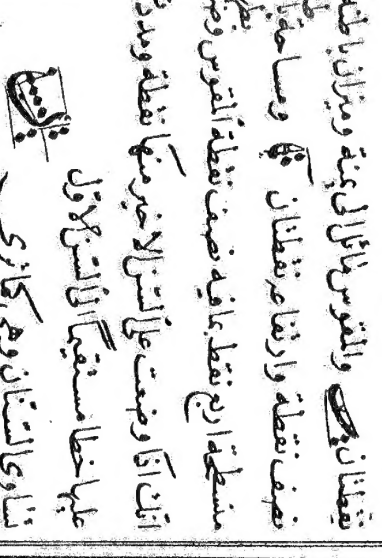 نقطتان والقوس مائل الى يمنة وميزان باطنه
نصف نقطة وارتفاعه نقطتان ومساحة
مسطحة اربع نقط بمافيه نصف نقطة القوس
انك اذا وضعت على السن الاخير منها نقطة
عليها خطا مستقيما الى السن الاول
تساوى السنتان وهى كما ترى